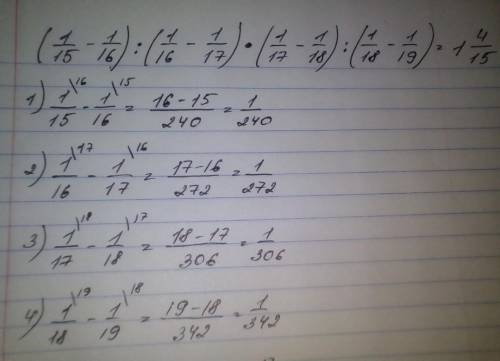 (1/15 - 1/16) : (1/16 - 1/17) • (1/17 - 1/18) : (1/18 - 1/19) = 1 4/15
1) 1\16/15 - 1\15/16 = 16-15/240 = 1/240
2) 1\17/16 - 1\16/17 = 17-16/272 = 1/272
3) 1\18/17 - 1\17/18 = 18-17/306 = 1/306
4) 1\19/18 - 1\18/19 = 19-18/342 = 1/342